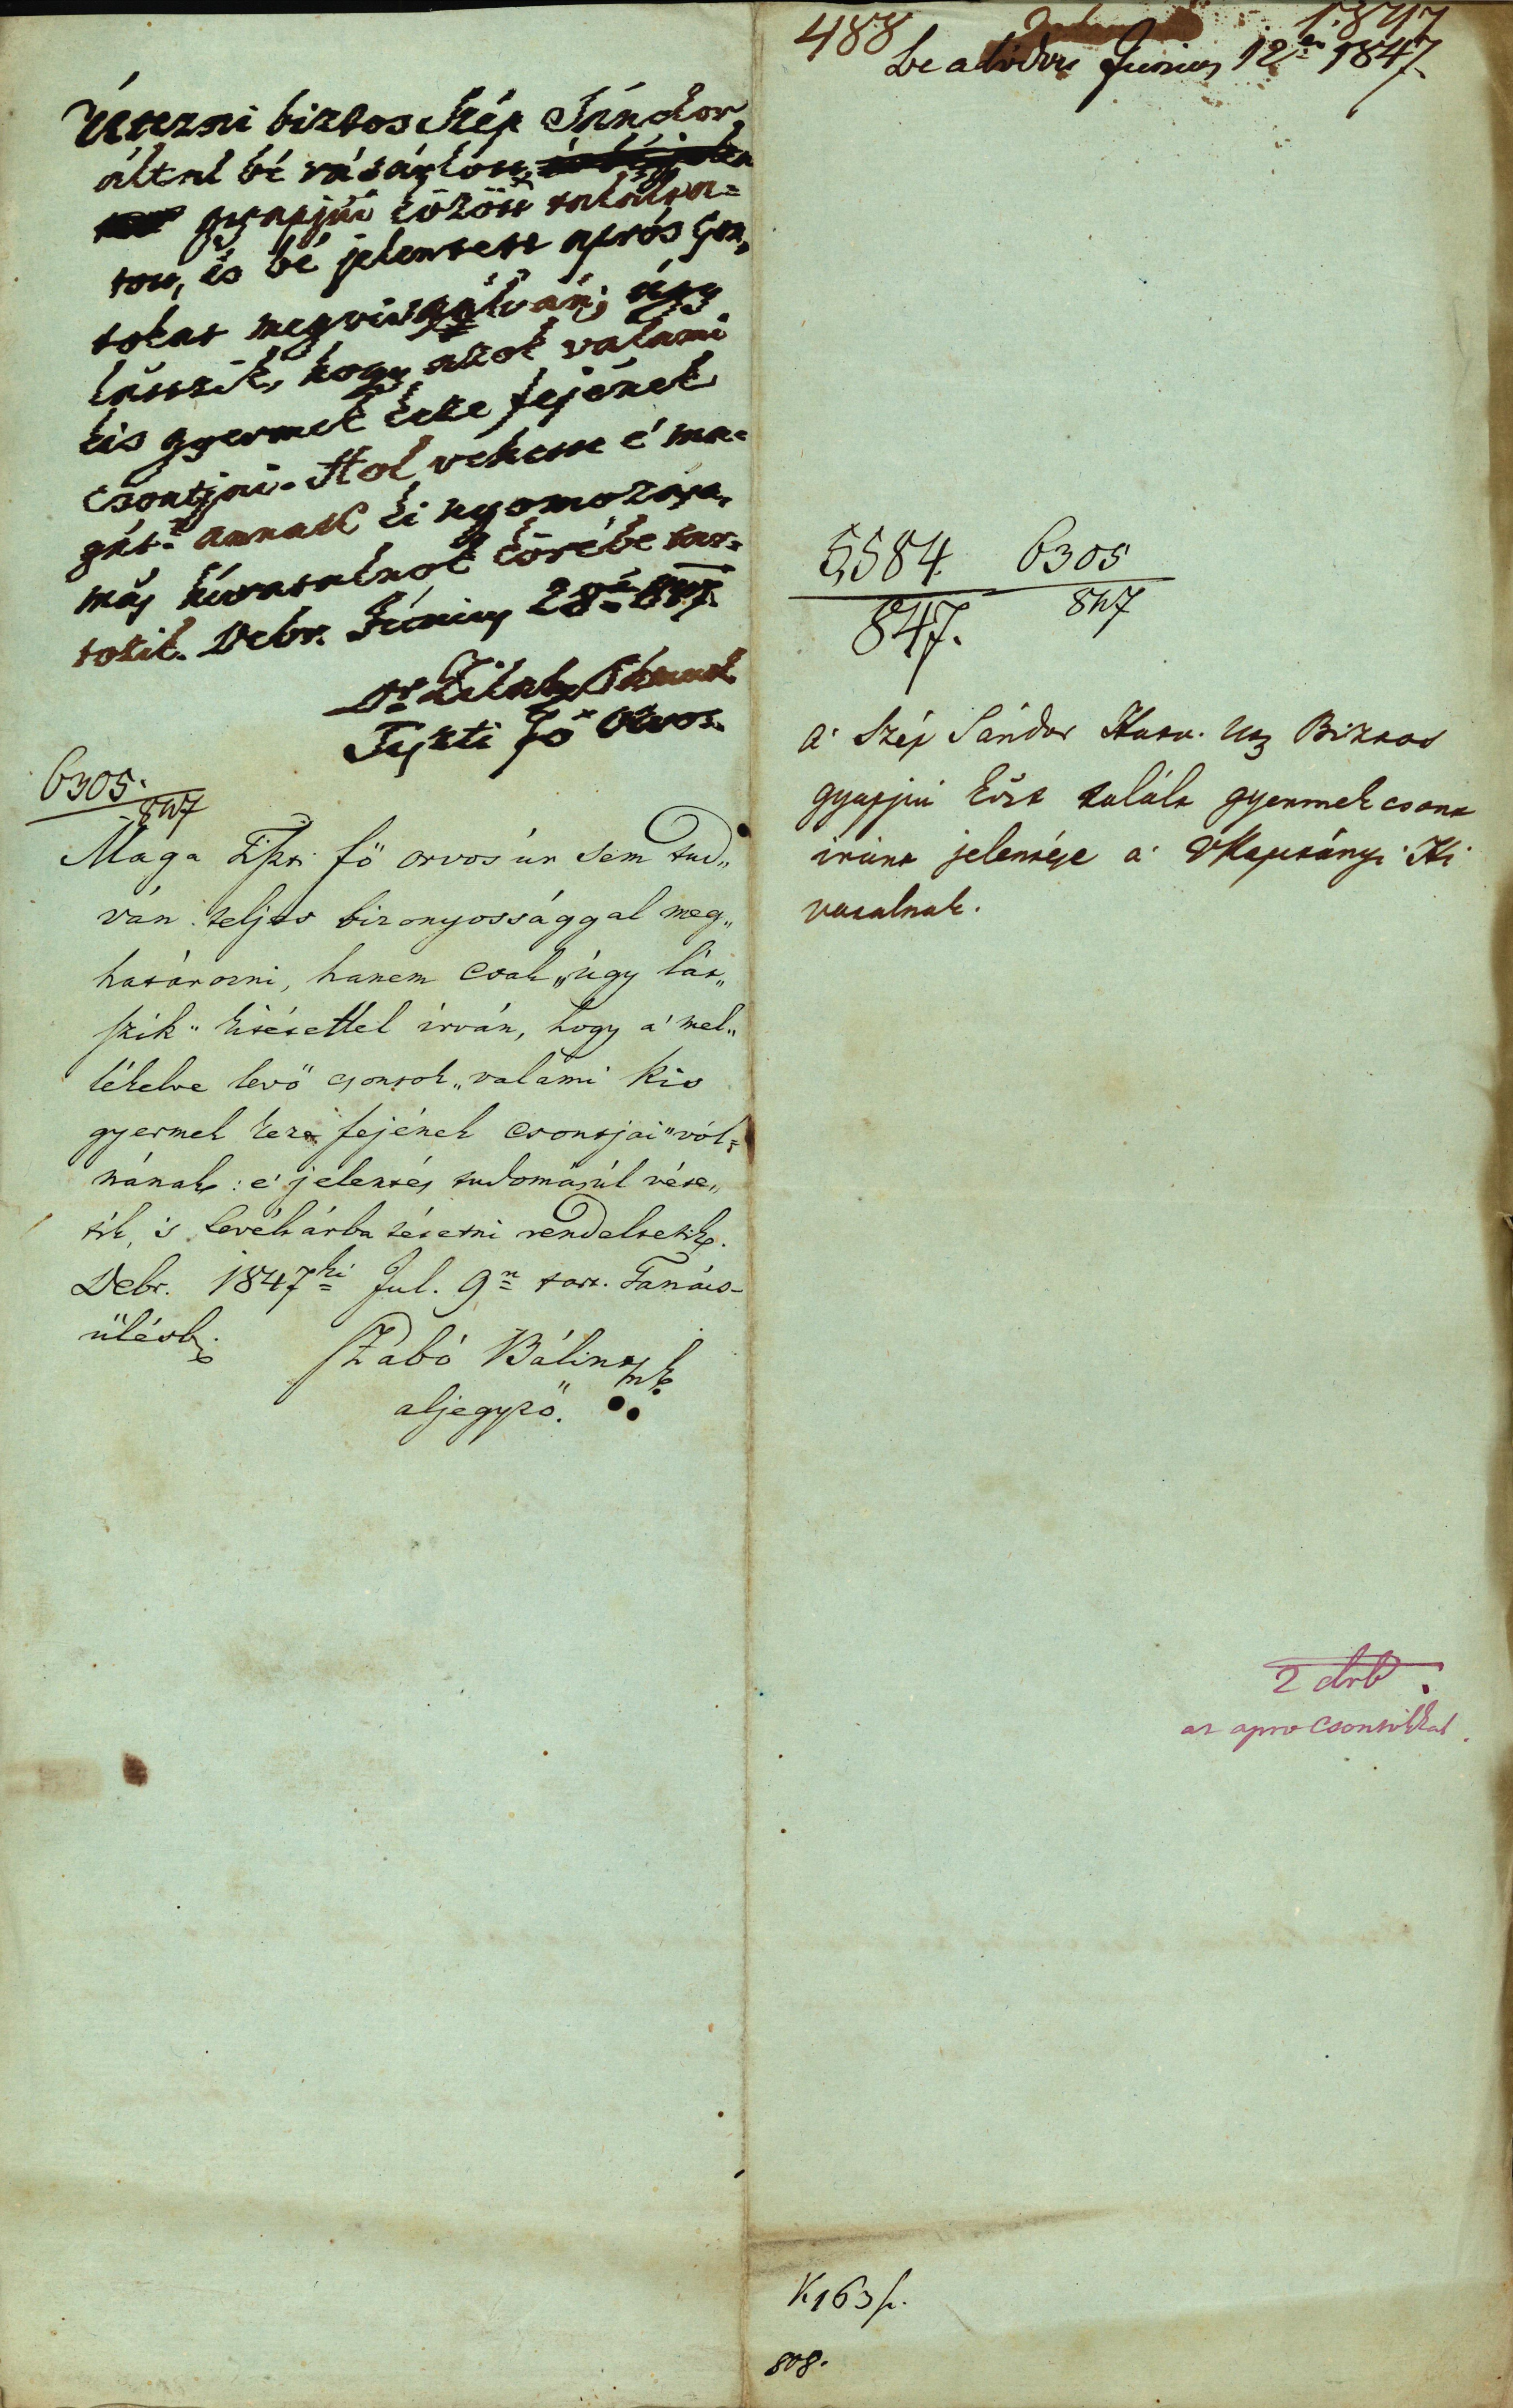 Útszai biztos Szép Sándor
által bé vásárlott
gyapjú között találta=
tott, és bé jelentett aprós cson„
tokat megvizsgálván; úgy
látszik, hogy azok valami
kis gyermek keze fejének
csontjai. Hol vehesse é ma=
gát annak ki nyomozása,
más hivatalnok körébe tar=
tozik. Debr. Június 28án 847.
Dr Zilahy Sámuel
Tiszti Fő Orvos.
6305.
847
Maga Tiszti fő orvos úr sem tud„
ván teljes bizonyossággal meg„
határozni, hanem csak „úgy lát„
szik“ kitétettel írván, hogy a' mel„
lékelve levő csontok „valami kis
gyermek keze fejének csontjai“ vól=
nának: e' jelentés tudomásúl véte„
tik, 's levéltárba tétetni rendeltetik.
Debr. 1847ki Jul. 9n tart. Tanács-
ülésb.
Szabó Bálint mk
aljegyző.
488
1847
Be adódou Junius 12én 1847.
5584. 6305
847. 847
A' Szép Sándor Biztos
gyapjú közt talált gyermek csont
iránt jelentése a' VKapitányi Hi
vatalnak.
2 drb.
az apro csontokkal.
K163 f.
808.